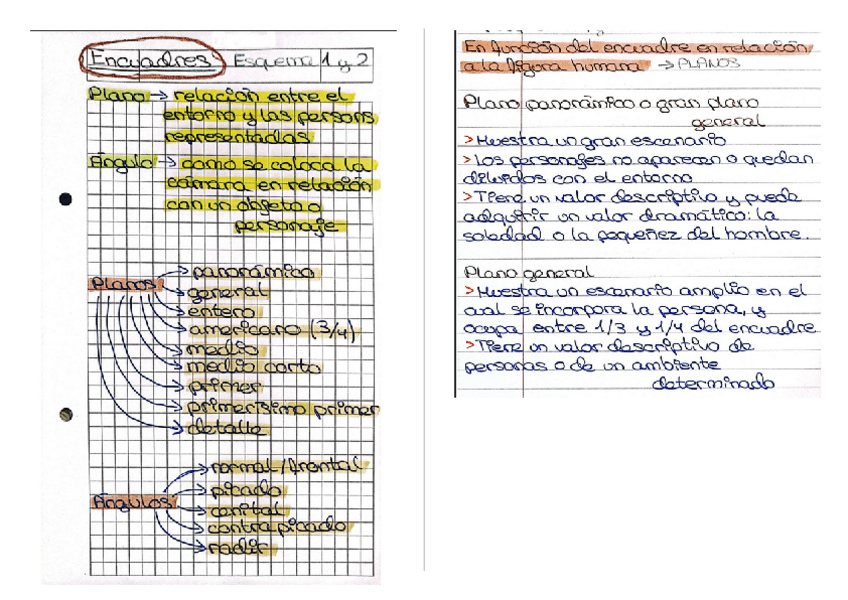 Encuadres Esquema 1 y 2
Plano → relación entre el
entorno y las persons
representadas
Ángulo → como se coloca la
cámara en relación
con un objeto o
personaje
Planos
panorámico
general
entero
americano (3/4)
medio
medio corto
primer
primerísimo primer
detalle
Ángulos
normal/frontal
picado
cenital
contrapicado
nadir
En función del encuadre en relación
a la figura humana → PLANOS
Plano panorámico o gran plano
general
> Muestra un gran escenario
> Los personajes no aparecen o quedan
diluidos con el entorno
> Tiene un valor descriptivo y puede
adquirir un valor dramático: la
soledad o la pequeñez del hombre.
Plano general
> Muestra un escenario amplio en el
cual se incorpora la persona, y
ocupa entre 1/3 y 1/4 del encuadre
> Tiene un valor descriptivo de
personas o de un ambiente
determinado